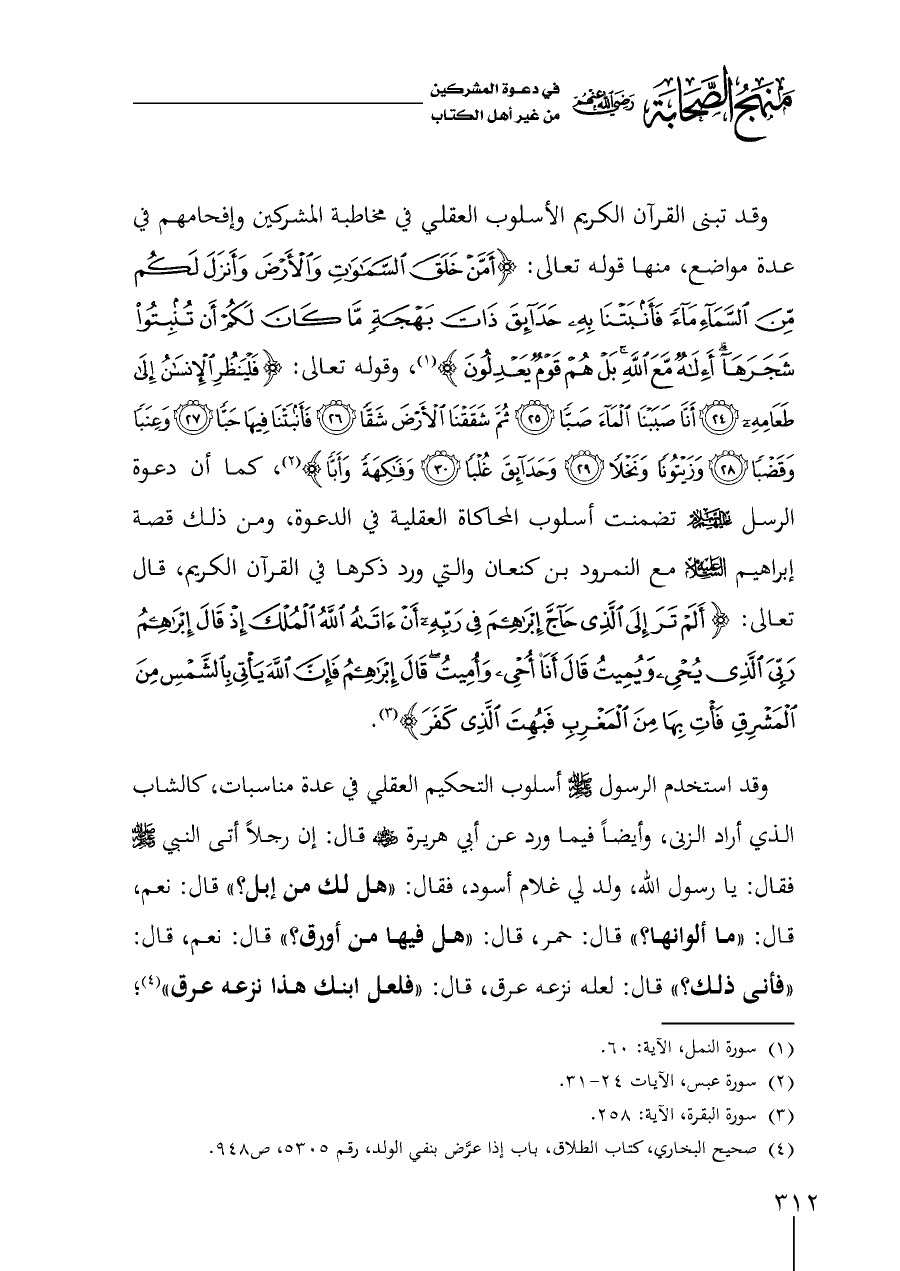 منهج الصحابة رضي الله عنهم
في دعوة المشركين
من غير أهل الكتاب
وقد تبنى القرآن الكريم الأسلوب العقلي في مخاطبة المشركين وإفحامهم في
عدة مواضع، منها قوله تعالى: ﴿أَمَّنْ خَلَقَ ٱلسَّمَٰوَٰتِ وَٱلْأَرْضَ وَأَنزَلَ لَكُم
مِّنَ ٱلسَّمَآءِ مَآءً فَأَنۢبَتْنَا بِهِۦ حَدَآئِقَ ذَاتَ بَهْجَةٍ مَّا كَانَ لَكُمْ أَن تُنۢبِتُوا۟
شَجَرَهَآ ۗ أَءِلَٰهٌ مَّعَ ٱللَّهِ ۚ بَلْ هُمْ قَوْمٌ يَعْدِلُونَ﴾(١)، وقوله تعالى: ﴿فَلْيَنظُرِ ٱلْإِنسَٰنُ إِلَىٰ
طَعَامِهِۦٓ ٢٤ أَنَّا صَبَبْنَا ٱلْمَآءَ صَبًّا ٢٥ ثُمَّ شَقَقْنَا ٱلْأَرْضَ شَقًّا ٢٦ فَأَنۢبَتْنَا فِيهَا حَبًّا ٢٧ وَعِنَبًا
وَقَضْبًا ٢٨ وَزَيْتُونًا وَنَخْلًا ٢٩ وَحَدَآئِقَ غُلْبًا ٣٠ وَفَٰكِهَةً وَأَبًّا﴾(٢)، كما أن دعوة
الرسل عليهم السلام تضمنت أسلوب المحاكاة العقلية في الدعوة، ومن ذلك قصة
إبراهيم عليه السلام مع النمرود بن كنعان والتي ورد ذكرها في القرآن الكريم، قال
تعالى: ﴿أَلَمْ تَرَ إِلَى ٱلَّذِى حَآجَّ إِبْرَٰهِـۧمَ فِى رَبِّهِۦٓ أَنْ ءَاتَىٰهُ ٱللَّهُ ٱلْمُلْكَ إِذْ قَالَ إِبْرَٰهِـۧمُ
رَبِّىَ ٱلَّذِى يُحْىِۦ وَيُمِيتُ قَالَ أَنَا۠ أُحْىِۦ وَأُمِيتُ ۖ قَالَ إِبْرَٰهِـۧمُ فَإِنَّ ٱللَّهَ يَأْتِى بِٱلشَّمْسِ مِنَ
ٱلْمَشْرِقِ فَأْتِ بِهَا مِنَ ٱلْمَغْرِبِ فَبُهِتَ ٱلَّذِى كَفَرَ﴾(٣).
وقد استخدم الرسول ﷺ أسلوب التحكيم العقلي في عدة مناسبات، كالشاب
الذي أراد الزنى، وأيضاً فيما ورد عن أبي هريرة رضي الله عنه قال: إن رجلاً أتى النبي ﷺ
فقال: يا رسول الله، ولد لي غلام أسود، فقال: «هل لك من إبل؟» قال: نعم،
قال: «ما ألوانها؟» قال: حمر، قال: «هل فيها من أورق؟» قال: نعم، قال:
«فأنى ذلك؟» قال: لعله نزعه عرق، قال: «فلعل ابنك هذا نزعه عرق»(٤)؛
(١) سورة النمل، الآية: ٦٠.
(٢) سورة عبس، الآيات ٢٤-٣١.
(٣) سورة البقرة، الآية: ٢٥٨.
(٤) صحيح البخاري، كتاب الطلاق، باب إذا عرَّض بنفي الولد، رقم ٥٣٠٥، ص٩٤٨.
٣١٢